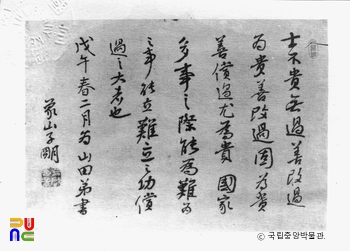 士不貴無過善改過
為貴善改過固為貴
善償過尤為貴 國家
多事之際能為難為
之事能立難立之功償
過之大者也
戊午春二月為山田弟書
山子
© 국립중앙박물관